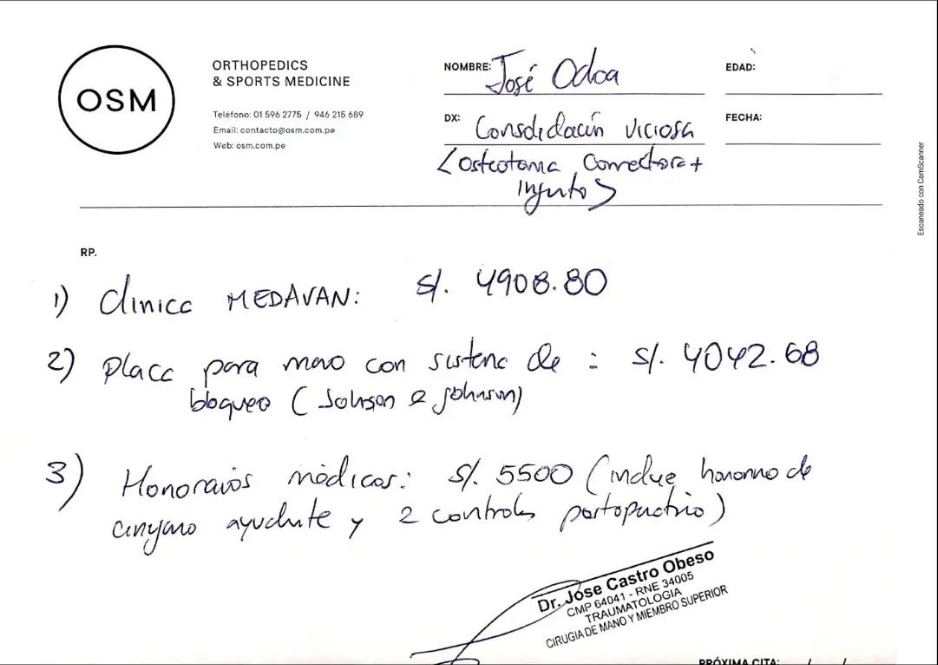 OSM
ORTHOPEDICS
& SPORTS MEDICINE
Teléfono: 01 596 2775 / 946 215 689
Email: contacto@osm.com.pe
Web: osm.com.pe
NOMBRE: José
EDAD:
DX: Consolidación viciosa
FECHA:
(osteotomía correctora +
injerto)
Escaneado con CamScanner
RP.
1) Clinica MEDAVAN: S/. 4908.80
2) Placa para mano con sistema de : S/. 4042.68
bloqueo (Johnson e Johnson)
3) Honorarios médicos: S/. 5500 (incluye honorario de
cirujano ayudante y 2 controles postoperatorio)
Dr. Jose Castro Obeso
CMP 64041 - RNE 34005
TRAUMATOLOGIA
CIRUGIA DE MANO Y MIEMBRO SUPERIOR
PRÓXIMA CITA: / /